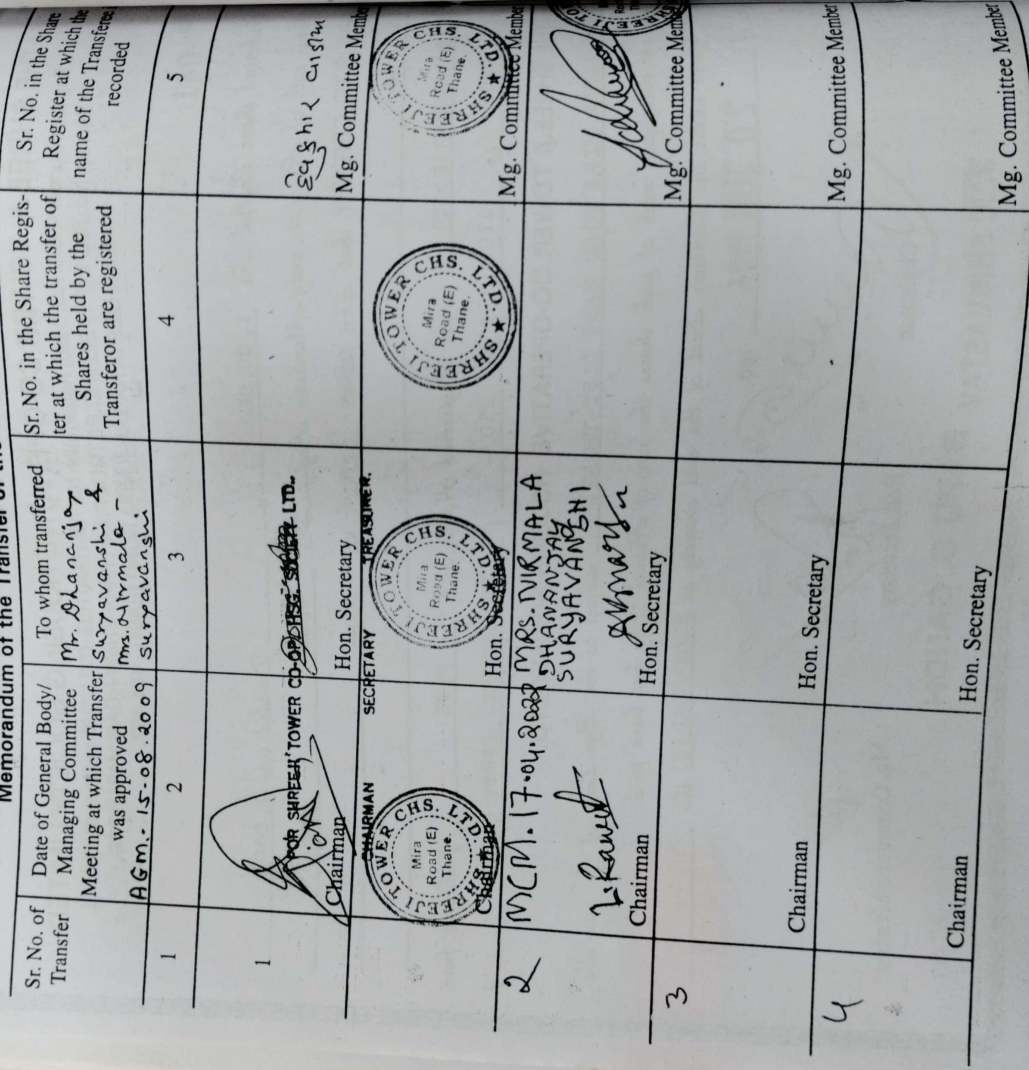 Memorandum of the Transfer of the
Sr. No. of
Transfer
Date of General Body/
Managing Committee
Meeting at which Transfer
was approved
AGM.- 15-08.2009
To whom transferred
Mr. Dhananjay
Suryavanshi &
Mrs. Nirmala -
Suryavanshi
Sr. No. in the Share Regis-
ter at which the transfer of
Shares held by the
Transferor are registered
Sr. No. in the Share
Register at which the
name of the Transferee
recorded
1 2 3 4 5
1
FOR SHREEJI TOWER CO-OP. HSG. SOCIETY LTD.
Chairman Hon. Secretary Mg. Committee Member
CHAIRMAN SECRETARY TREASURER.
SHREEJI TOWER CHS. LTD. ★
Mira
Road (E)
Thane.
SHREEJI TOWER CHS. LTD. ★
Mira
Road (E)
Thane.
SHREEJI TOWER CHS. LTD. ★
Mira
Road (E)
Thane.
SHREEJI TOWER CHS. LTD. ★
Mira
Road (E)
Thane.
Chairman Hon. Secretary Mg. Committee Member
2 MCM. 17.04.2022 MRS. NIRMALA
DHANANJAY
SURYAVANSHI
Chairman Hon. Secretary Mg. Committee Member
3
Chairman Hon. Secretary Mg. Committee Member
4
Chairman Hon. Secretary Mg. Committee Member